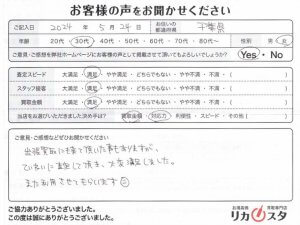 お客様の声をお聞かせください
ご記入日 2024年 5月 24日 お住いの都道府県 千葉県
年齢 20代・30代・40代・50代・60代・70代・80代〜 性別 男・女
ご意見・ご感想を弊社ホームページにお客様の声として掲載させて頂いてもよろしいでしょうか? Yes・No
査定スピード 大満足・満足・どちらでもない・やや不満・不満
スタッフ接客 大満足・満足・どちらでもない・やや不満・不満
買取金額 大満足・満足・どちらでもない・やや不満・不満
当店をお選びいただきました決め手は? 買取金額・対応力・利便性・スピード・その他
ご意見・ご感想などぜひお聞かせください
出張買取に来て頂いた事もありますが、
ていねいに査定して頂き、大変満足しました。
また利用させてもらいます
ご協力ありがとうございました。
この度は誠にありがとうございます。
お酒高価買取専門店
リカスタ